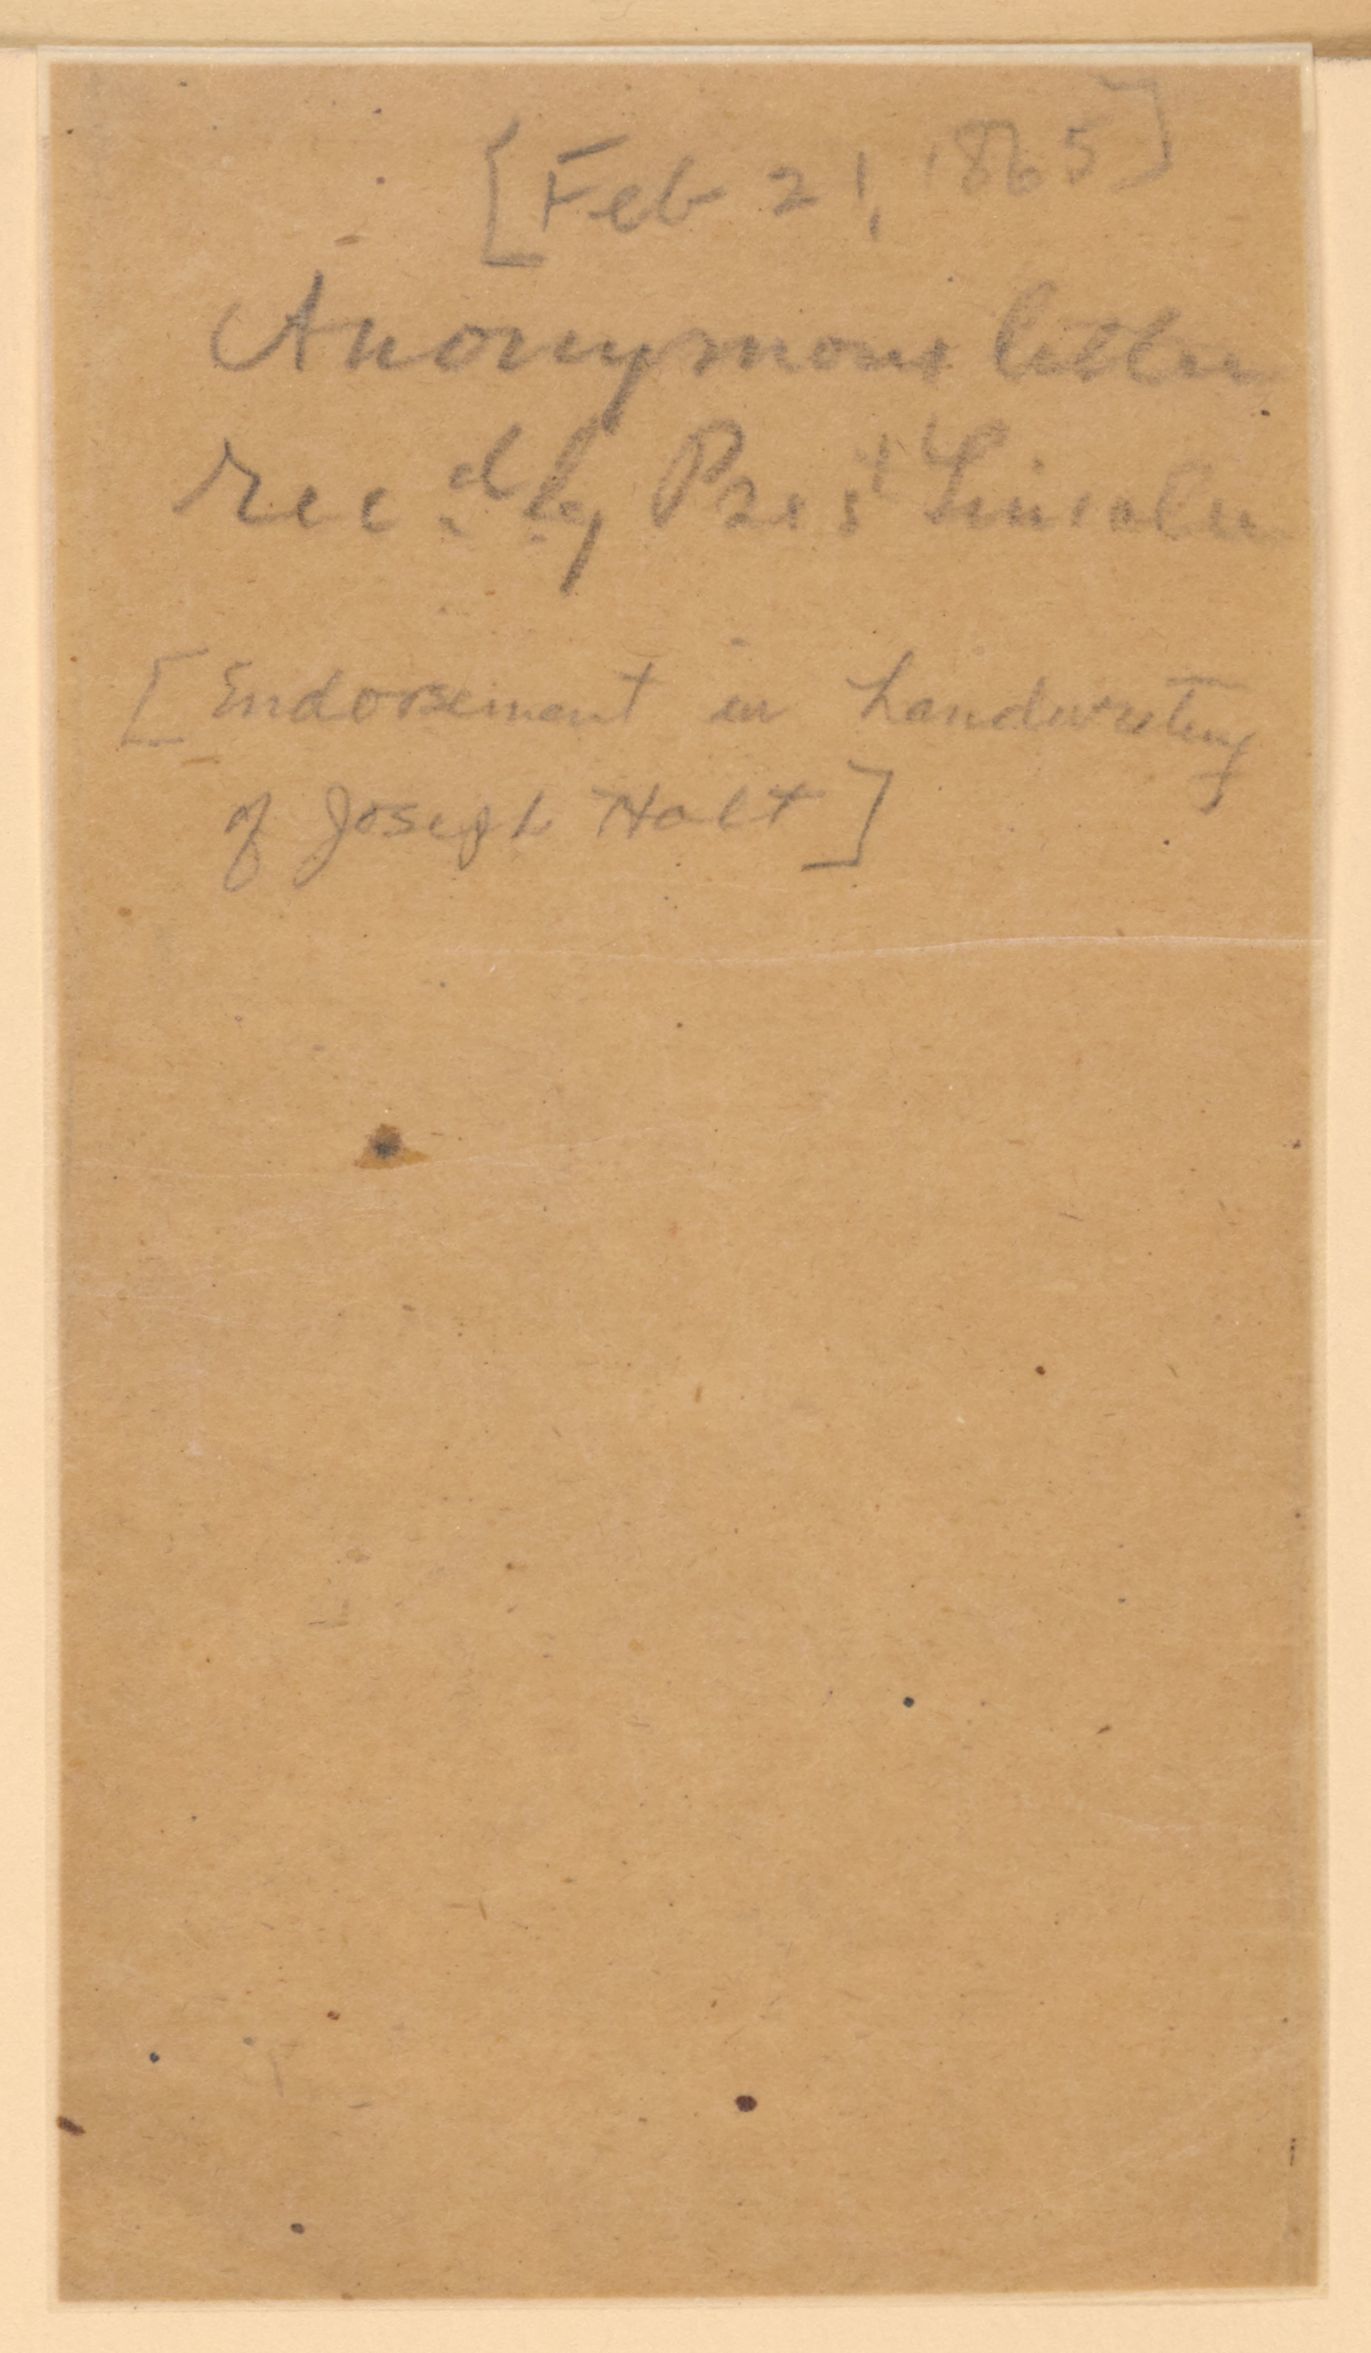 [Feb 21, 1865]
Anonymous letter
rec.d by Prest Lincoln
[Endorsement in handwriting
of Joseph Holt]